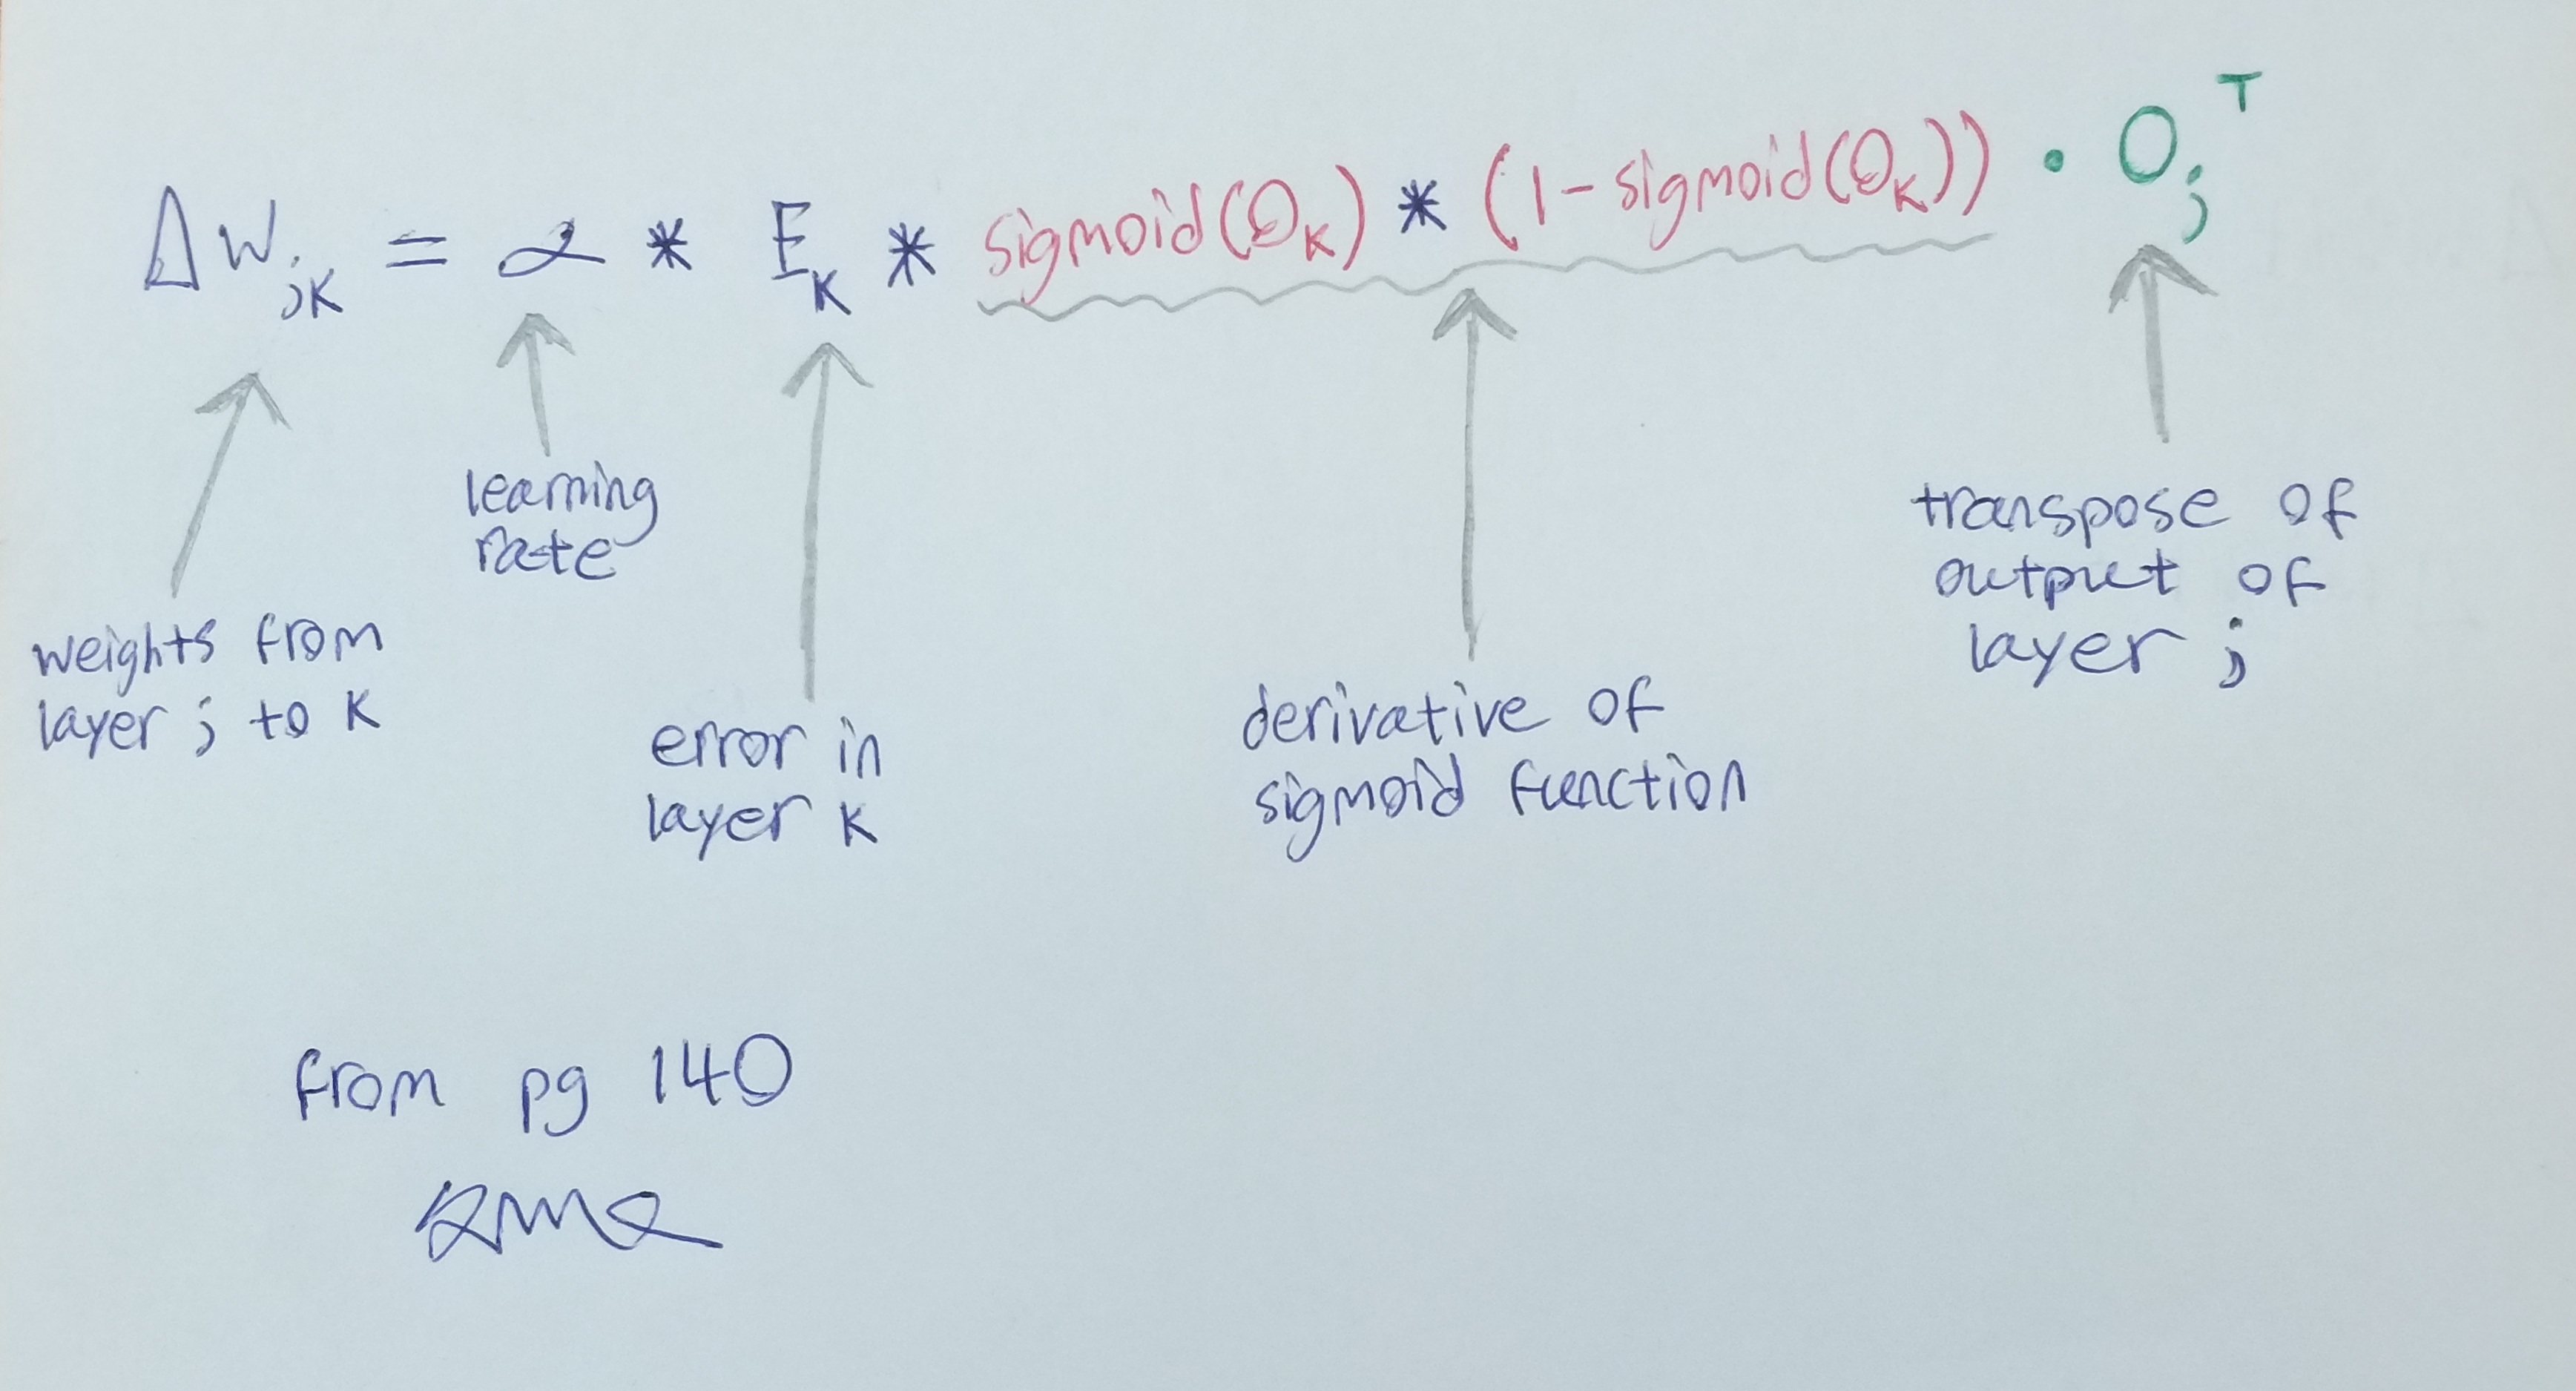 ΔW_jk = α * E_k * sigmoid(O_k) * (1 - sigmoid(O_k)) · O_j^T
learning
rate
weights from
layer j to k
error in
layer k
derivative of
sigmoid function
transpose of
output of
layer j
from pg 140